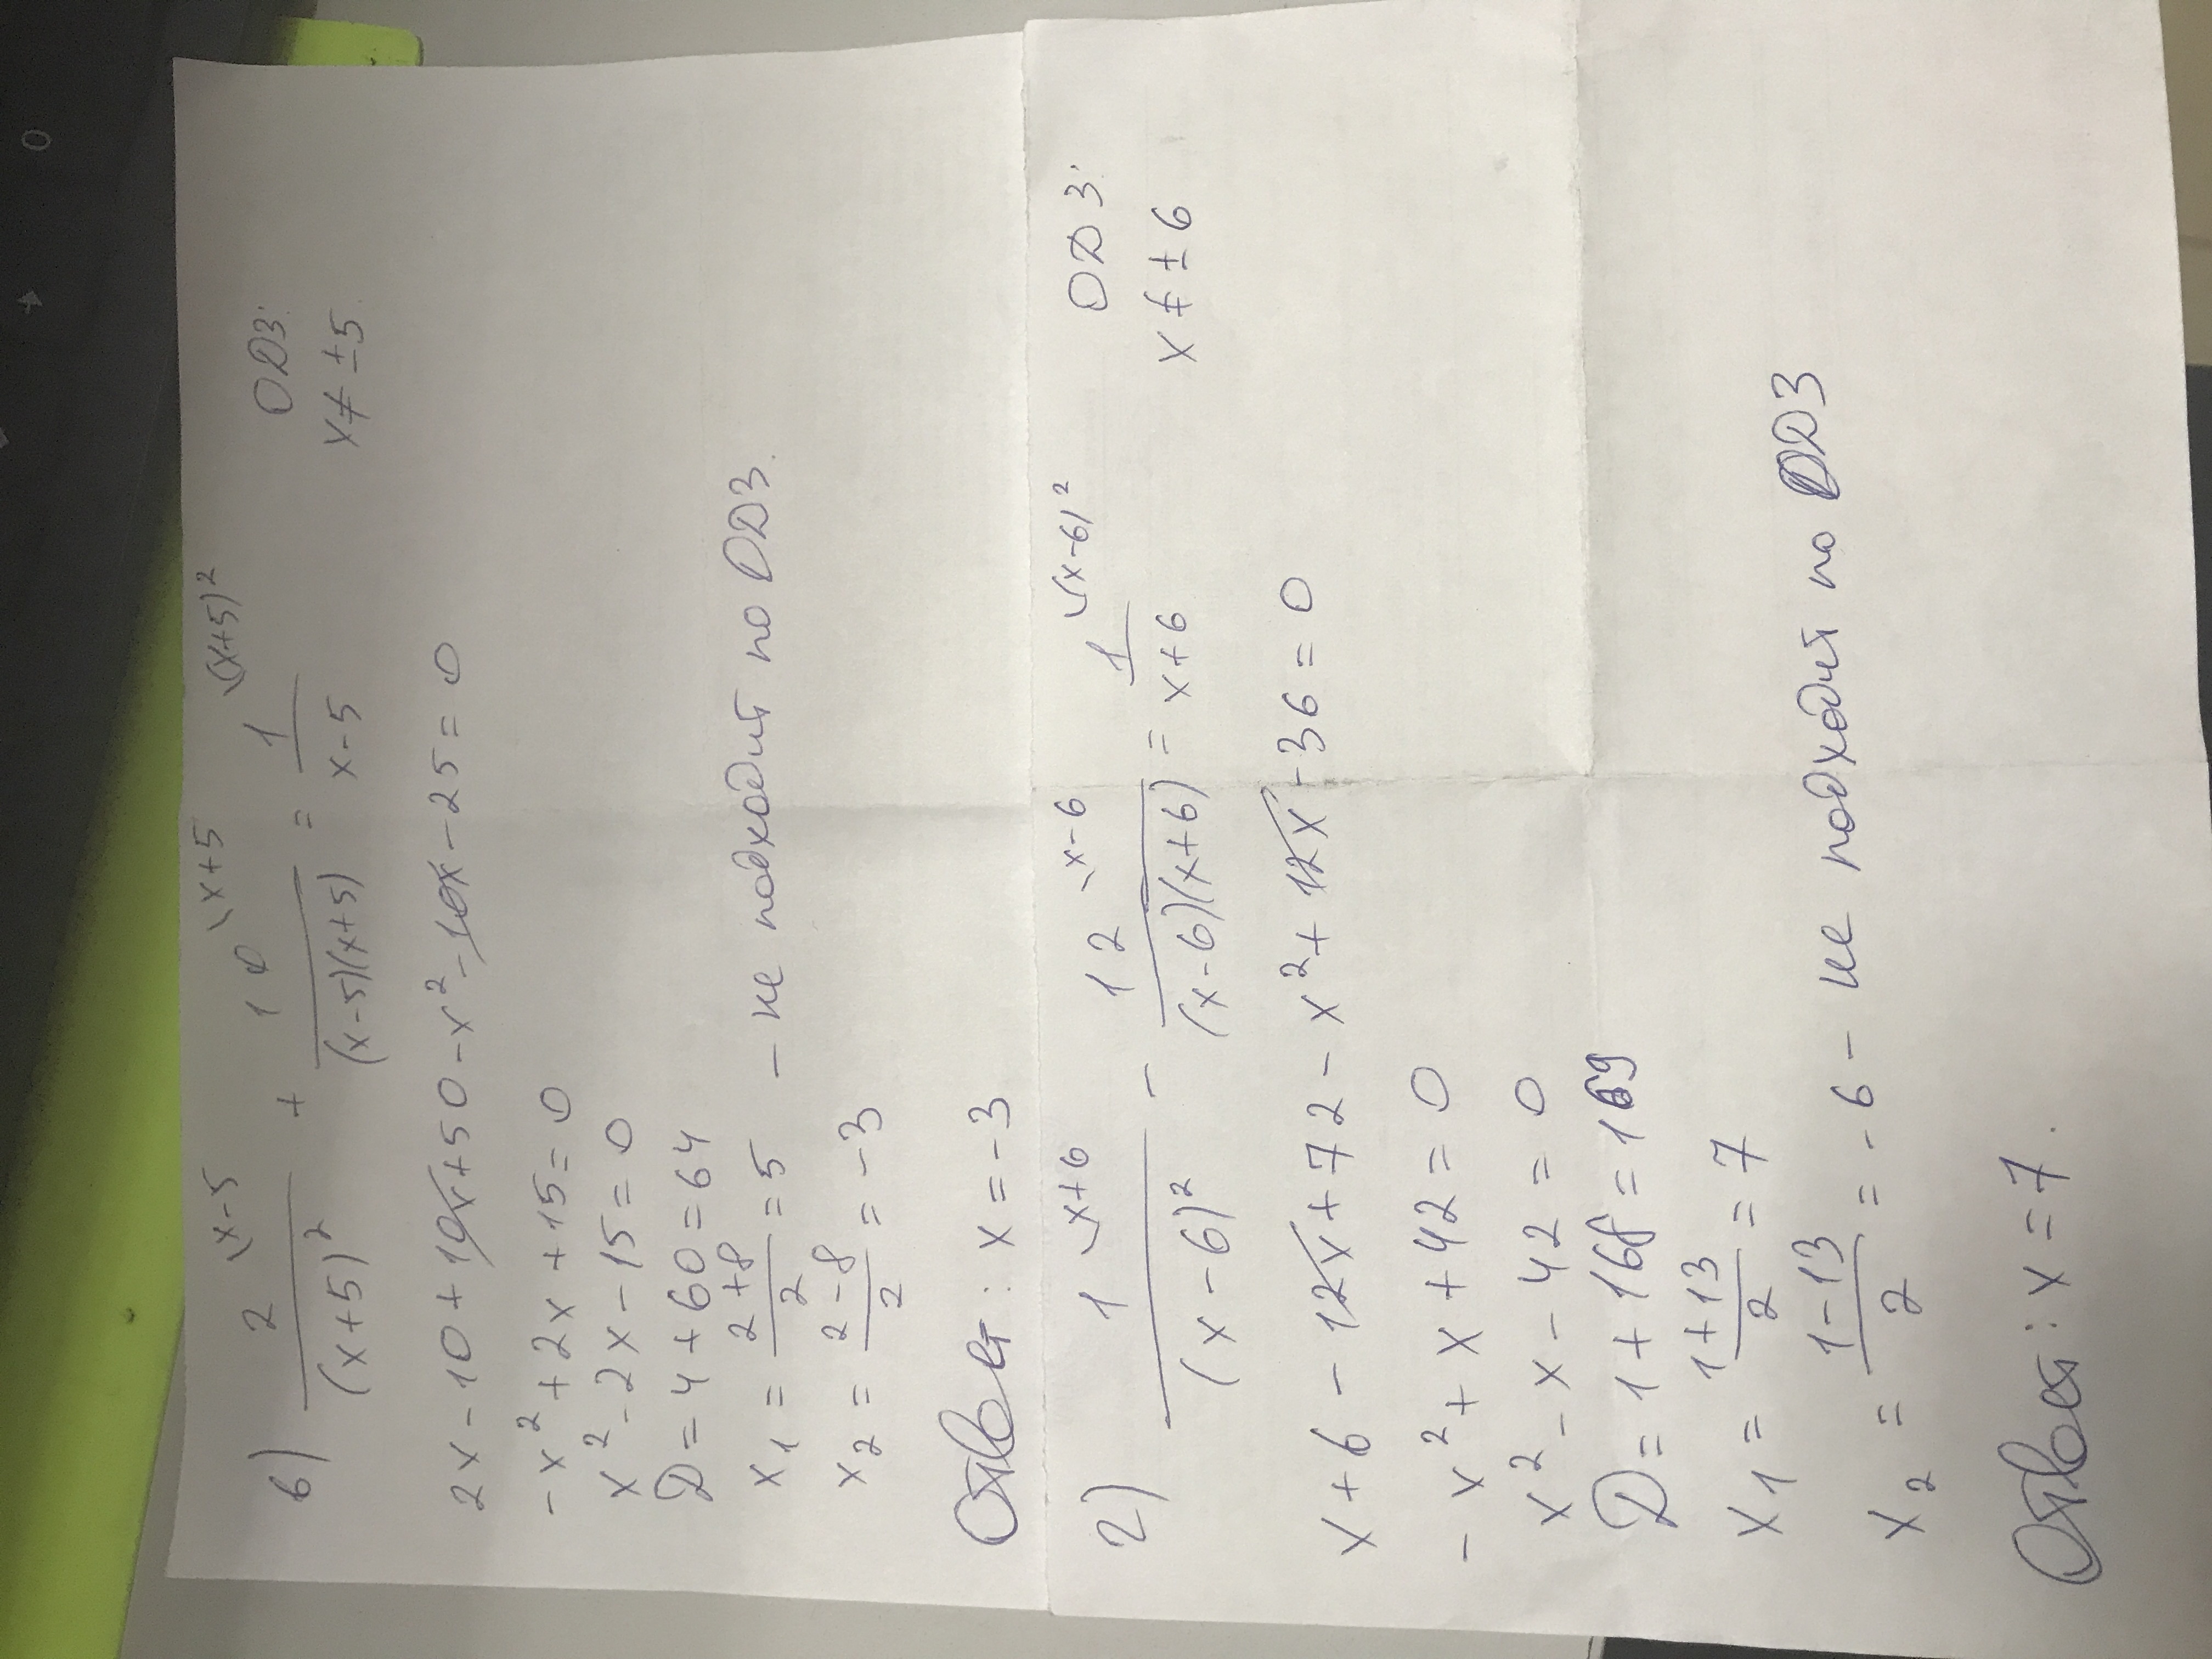 в) 2/(x+5)² \x-5 + 10/((x-5)(x+5)) \x+5 = 1/(x-5) \(x+5)² ОДЗ:
x ≠ ±5
2x - 10 + 10x + 50 - x² - 10x - 25 = 0
- x² + 2x + 15 = 0
x² - 2x - 15 = 0
D = 4 + 60 = 64
x₁ = (2+8)/2 = 5 - не подходит по ОДЗ.
x₂ = (2-8)/2 = -3
Ответ: x = -3
г) 1/(x-6)² \x+6 - 12/((x-6)(x+6)) \x-6 = 1/(x+6) \(x-6)² ОДЗ:
x ≠ ±6
x + 6 - 12x + 72 - x² + 12x - 36 = 0
- x² + x + 42 = 0
x² - x - 42 = 0
D = 1 + 168 = 169
x₁ = (1+13)/2 = 7
x₂ = (1-13)/2 = -6 - не подходит по ОДЗ
Ответ: x = 7.